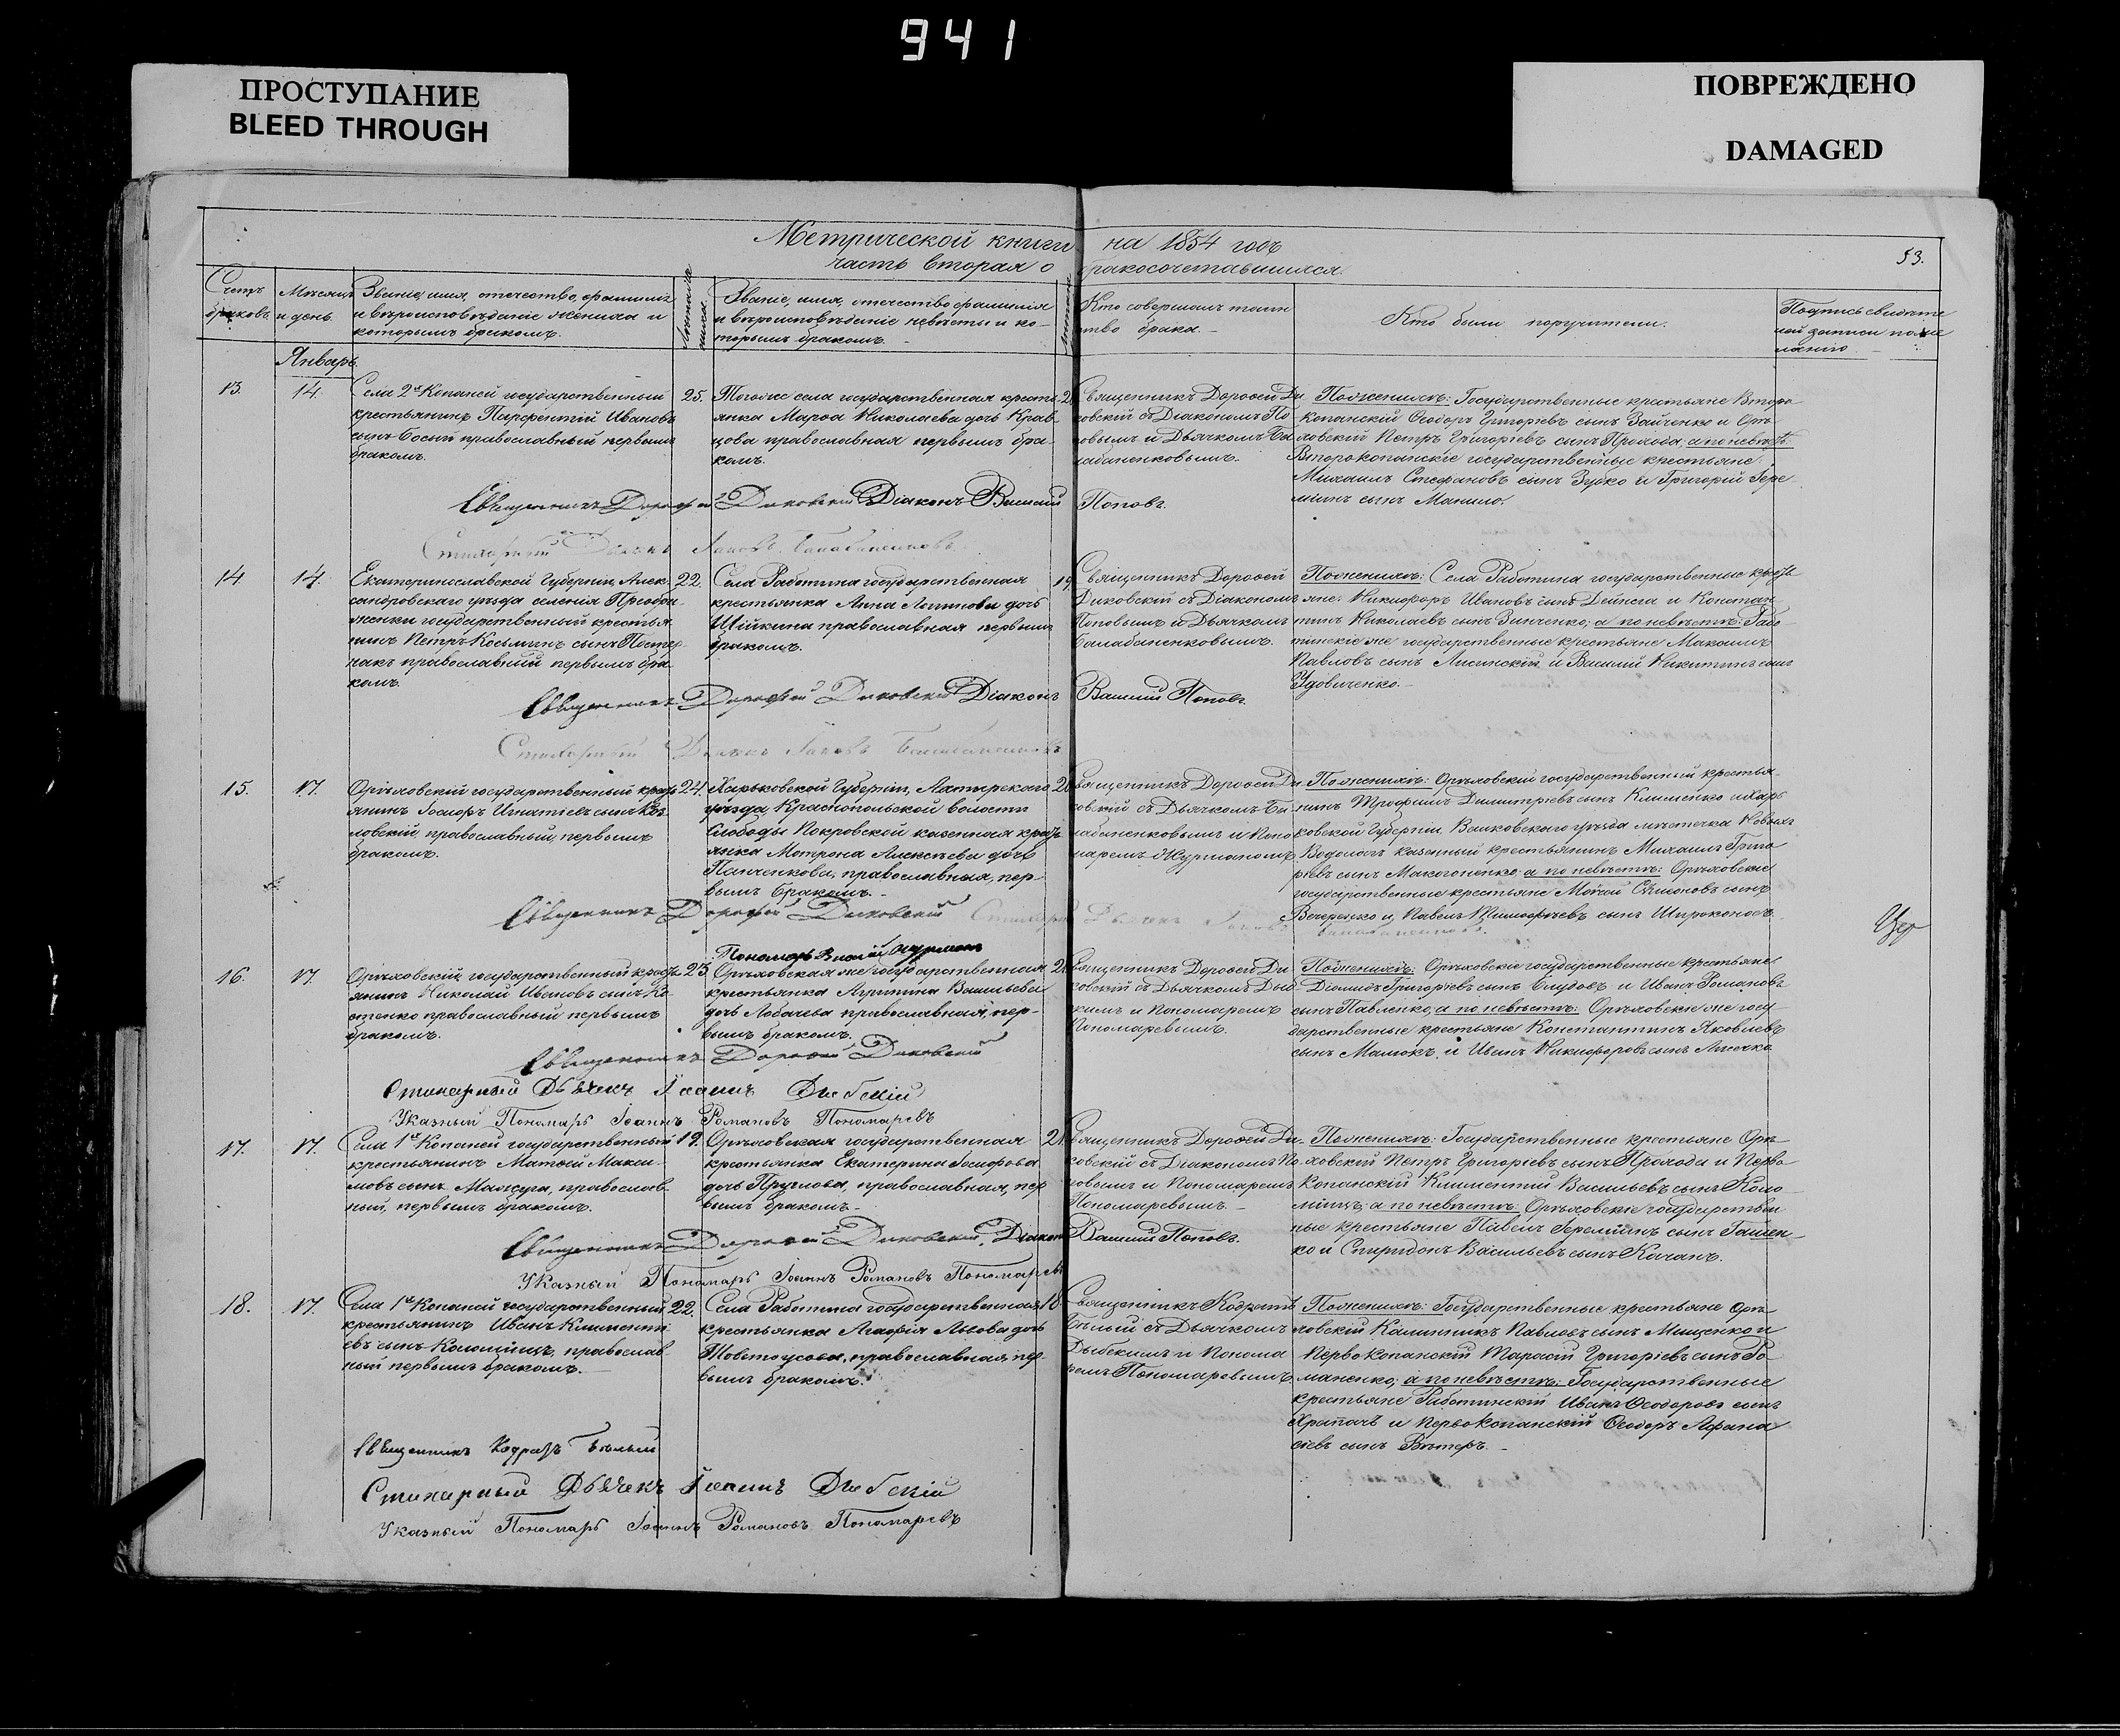 941
ПРОСТУПАНИЕ
BLEED THROUGH
ПОВРЕЖДЕНО
DAMAGED
Метрической книги на 1854 годъ
часть вторая о бракосочетавшихся.
53.
Счетъ браковъ.
Мѣсяцъ и день.
Званіе, имя, отечество, фамилія
и вѣроисповѣданіе жениха и
которымъ бракомъ.
Званіе, имя, отечество, фамилія
и вѣроисповѣданіе невѣсты и ко-
торымъ бракомъ.
Кто совершалъ таин
ство брака.
Кто были поручители.
Подпись свидѣте
лей записи по же
ланію
Январь.
13. 14.
Села 2й Копаней государственный
крестьянинъ Парфентій Ивановъ
сынъ Босый православный первымъ
бракомъ.
25.
Тогоже села государственная кресть
янка Марѳа Николаева дочь Крав-
цова православная первымъ бра-
комъ.
Священникъ Дороѳей Ди
ковскій съ Діакономъ По
повымъ и Дьячкомъ Ба
лабаненковымъ.
По женихѣ: Государственные крестьяне Второ
копанскій Ѳеодоръ Григорьевъ сынъ Зайченко и Орѣ
ховскій Петръ Григорьевъ сынъ Прохода; а по невѣстѣ:
Второкопанскіе государственные крестьяне
Михаилъ Стефановъ сынъ Зубко и Григорій Іере
міинъ сынъ Манило.
Священникъ Дороѳей Диковскій Діаконъ Василій Поповъ.
Стихарный Дьячекъ Іаковъ Балабаненковъ
14 14.
Екатеринославской Губерніи, Алек
сандровскаго уѣзда селенія Преобра
женки государственный крестья
нинъ Петръ Косьминъ сынъ Постер
накъ православный первымъ бра
комъ.
22.
Села Работина государственная
крестьянка Анна Логинова дочь
Шійкина православная первымъ
бракомъ.
19.
Священникъ Дороѳей
Диковскій съ Діакономъ
Поповымъ и Дьячкомъ
Балабаненковымъ.
По женихѣ: Села Работина государственные кресть
яне: Никифоръ Ивановъ сынъ Дейнега и Констан
тинъ Николаевъ сынъ Зинченко; а по невѣстѣ: Рабо
тинскіе же государственные крестьяне Максимъ
Павловъ сынъ Лисинскій и Василій Никитинъ сынъ
Удовиченко.
Священникъ Дороѳей Диковскій Діаконъ Василій Поповъ.
Стихарный Дьячекъ Іаковъ Балабаненковъ
15. 17.
Орѣховскій государственный кресть
янинъ Іосифъ Игнатіевъ сынъ Коз
ловскій, православный, первымъ
бракомъ.
24.
Харьковской Губерніи, Ахтырскаго
уѣзда, Краснопольской волости
Слободы Покровской казенная кресть
янка Матрона Алексѣева дочь
Панченкова, православная, пер
вымъ бракомъ.
Священникъ Дороѳей Ди
ковскій съ Дьячкомъ Ба
лабаненковымъ и Поно
маремъ Журманомъ.
По женихѣ: Орѣховскій государственный крестья
нинъ Трофимъ Димитріевъ сынъ Клименко и Харь
ковской Губерніи, Валковскаго уѣзда мѣстечка Новыхъ
Водолагъ казенный крестьянинъ Михаилъ Григо
ріевъ сынъ Макогоненко; а по невѣстѣ: Орѣховскіе
государственные крестьяне Моѵсей Сѵмоновъ сынъ
Вечеренко и Павелъ Тимофѣевъ сынъ Широконосъ.
Священникъ Дороѳей Диковскій Стихарный Дьячекъ Іаковъ Балабаненковъ.
Пономарь Василій Журманъ
16. 17.
Орѣховскій государственный кресть
янинъ Николай Ивановъ сынъ Ко
стенко православный первымъ
бракомъ.
23.
Орѣховская же государственная
крестьянка Агрипина Васильева
дочь Лобачева православная, пер-
вымъ бракомъ.
Священникъ Дороѳей Ди
ковскій съ Дьячкомъ Дыб
кимъ и Пономаремъ
Пономаревымъ.
По женихѣ: Орѣховскіе государственные крестьяне
Діомидъ Григорьевъ сынъ Слудовъ и Иванъ Романовъ
сынъ Павленко; а по невѣстѣ: Орѣховскіе же госу
дарственные крестьяне Константинъ Яковлевъ
сынъ Малюкъ и Иванъ Никифоровъ сынъ Лисечко
Священникъ Дороѳей Диковскій
Стихарный Дьячекъ Іоаннъ Дибскій
Указный Пономарь Іоаннъ Романовъ Пономаревъ
17. 17.
Села 1й Копаней государственный
крестьянинъ Матѳей Макси-
мовъ сынъ Мажуга, православ-
ный, первымъ бракомъ.
19.
Орѣховская государственная
крестьянка Екатерина Іосифова
дочь Круглова, православная, пер
вымъ бракомъ.
21.
Священникъ Дороѳей Ди-
ковскій съ Діакономъ По
повымъ и Пономаремъ
Пономаревымъ.
По женихѣ: Государственные крестьяне Орѣ
ховскій Петръ Григорьевъ сынъ Прохода и Перво
копанскій Климентій Васильевъ сынъ Коло
міицъ; а по невѣстѣ: Орѣховскіе государствен
ные крестьяне Павелъ Іереміинъ сынъ Гашен-
ко и Спиридонъ Васильевъ сынъ Качанъ.
Священникъ Дороѳей Диковскій, Діаконъ Василій Поповъ.
Указный Пономарь Іоаннъ Романовъ Пономаревъ
18. 17.
Села 1й Копаней государственный
крестьянинъ Иванъ Клименті
евъ сынъ Коломіицъ, православ
ный первымъ бракомъ.
22.
Села Работина государственная
крестьянка Агафія Львова дочь
Товстоусова, православная, пер-
вымъ бракомъ.
18
Священникъ Кодратъ
Бѣлый съ Дьячкомъ
Дыбскимъ и Понома
ремъ Пономаревымъ.
По женихѣ: Государственные крестьяне Орѣ
ховскій Калинникъ Павловъ сынъ Мищенко и
Первокопанскій Тарасій Григорьевъ сынъ Ро
маненко; а по невѣстѣ: Государственные
крестьяне Работинскій Иванъ Ѳеодоровъ сынъ
Храпачъ и Первокопанскій Ѳеодоръ Афана
сіевъ сынъ Вѣтеръ.
Священникъ Кодратъ Бѣлый
Стихарный Дьячекъ Іоаннъ Дибскій
Указный Пономарь Іоаннъ Романовъ Пономаревъ